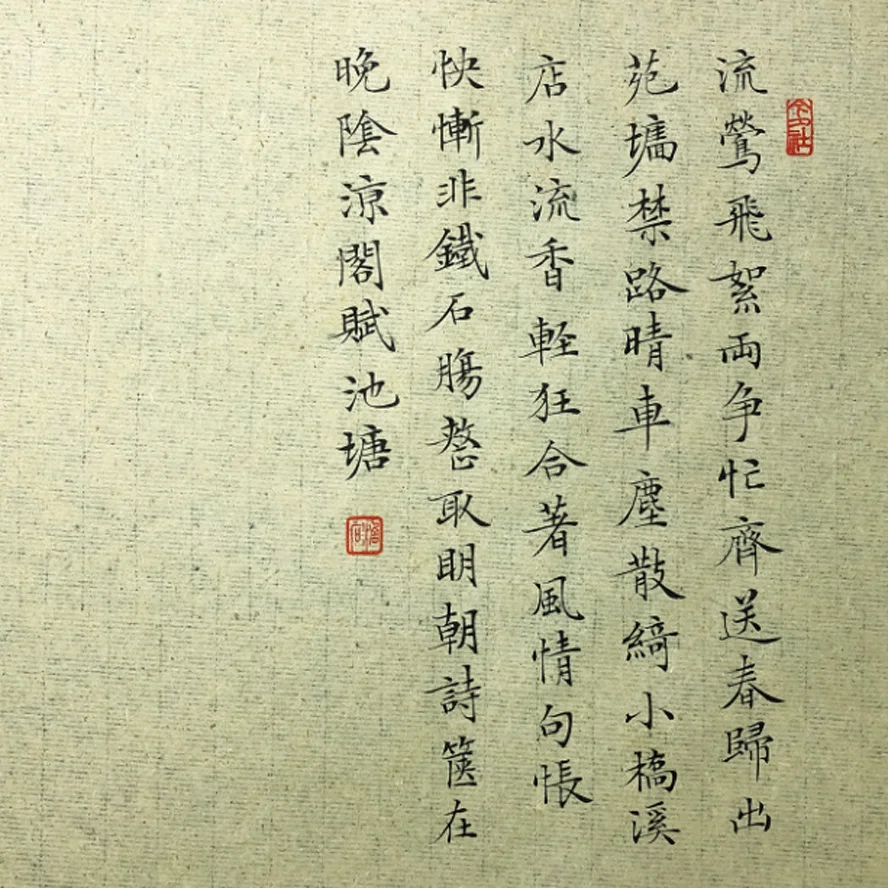 流鶯飛絮兩争忙齊送春歸出
苑墻禁路晴車塵散綺小橋溪
店水流香輕狂合著風情句悵
快慚非鐵石腸整取明朝詩篋在
晚陰涼閣賦池塘